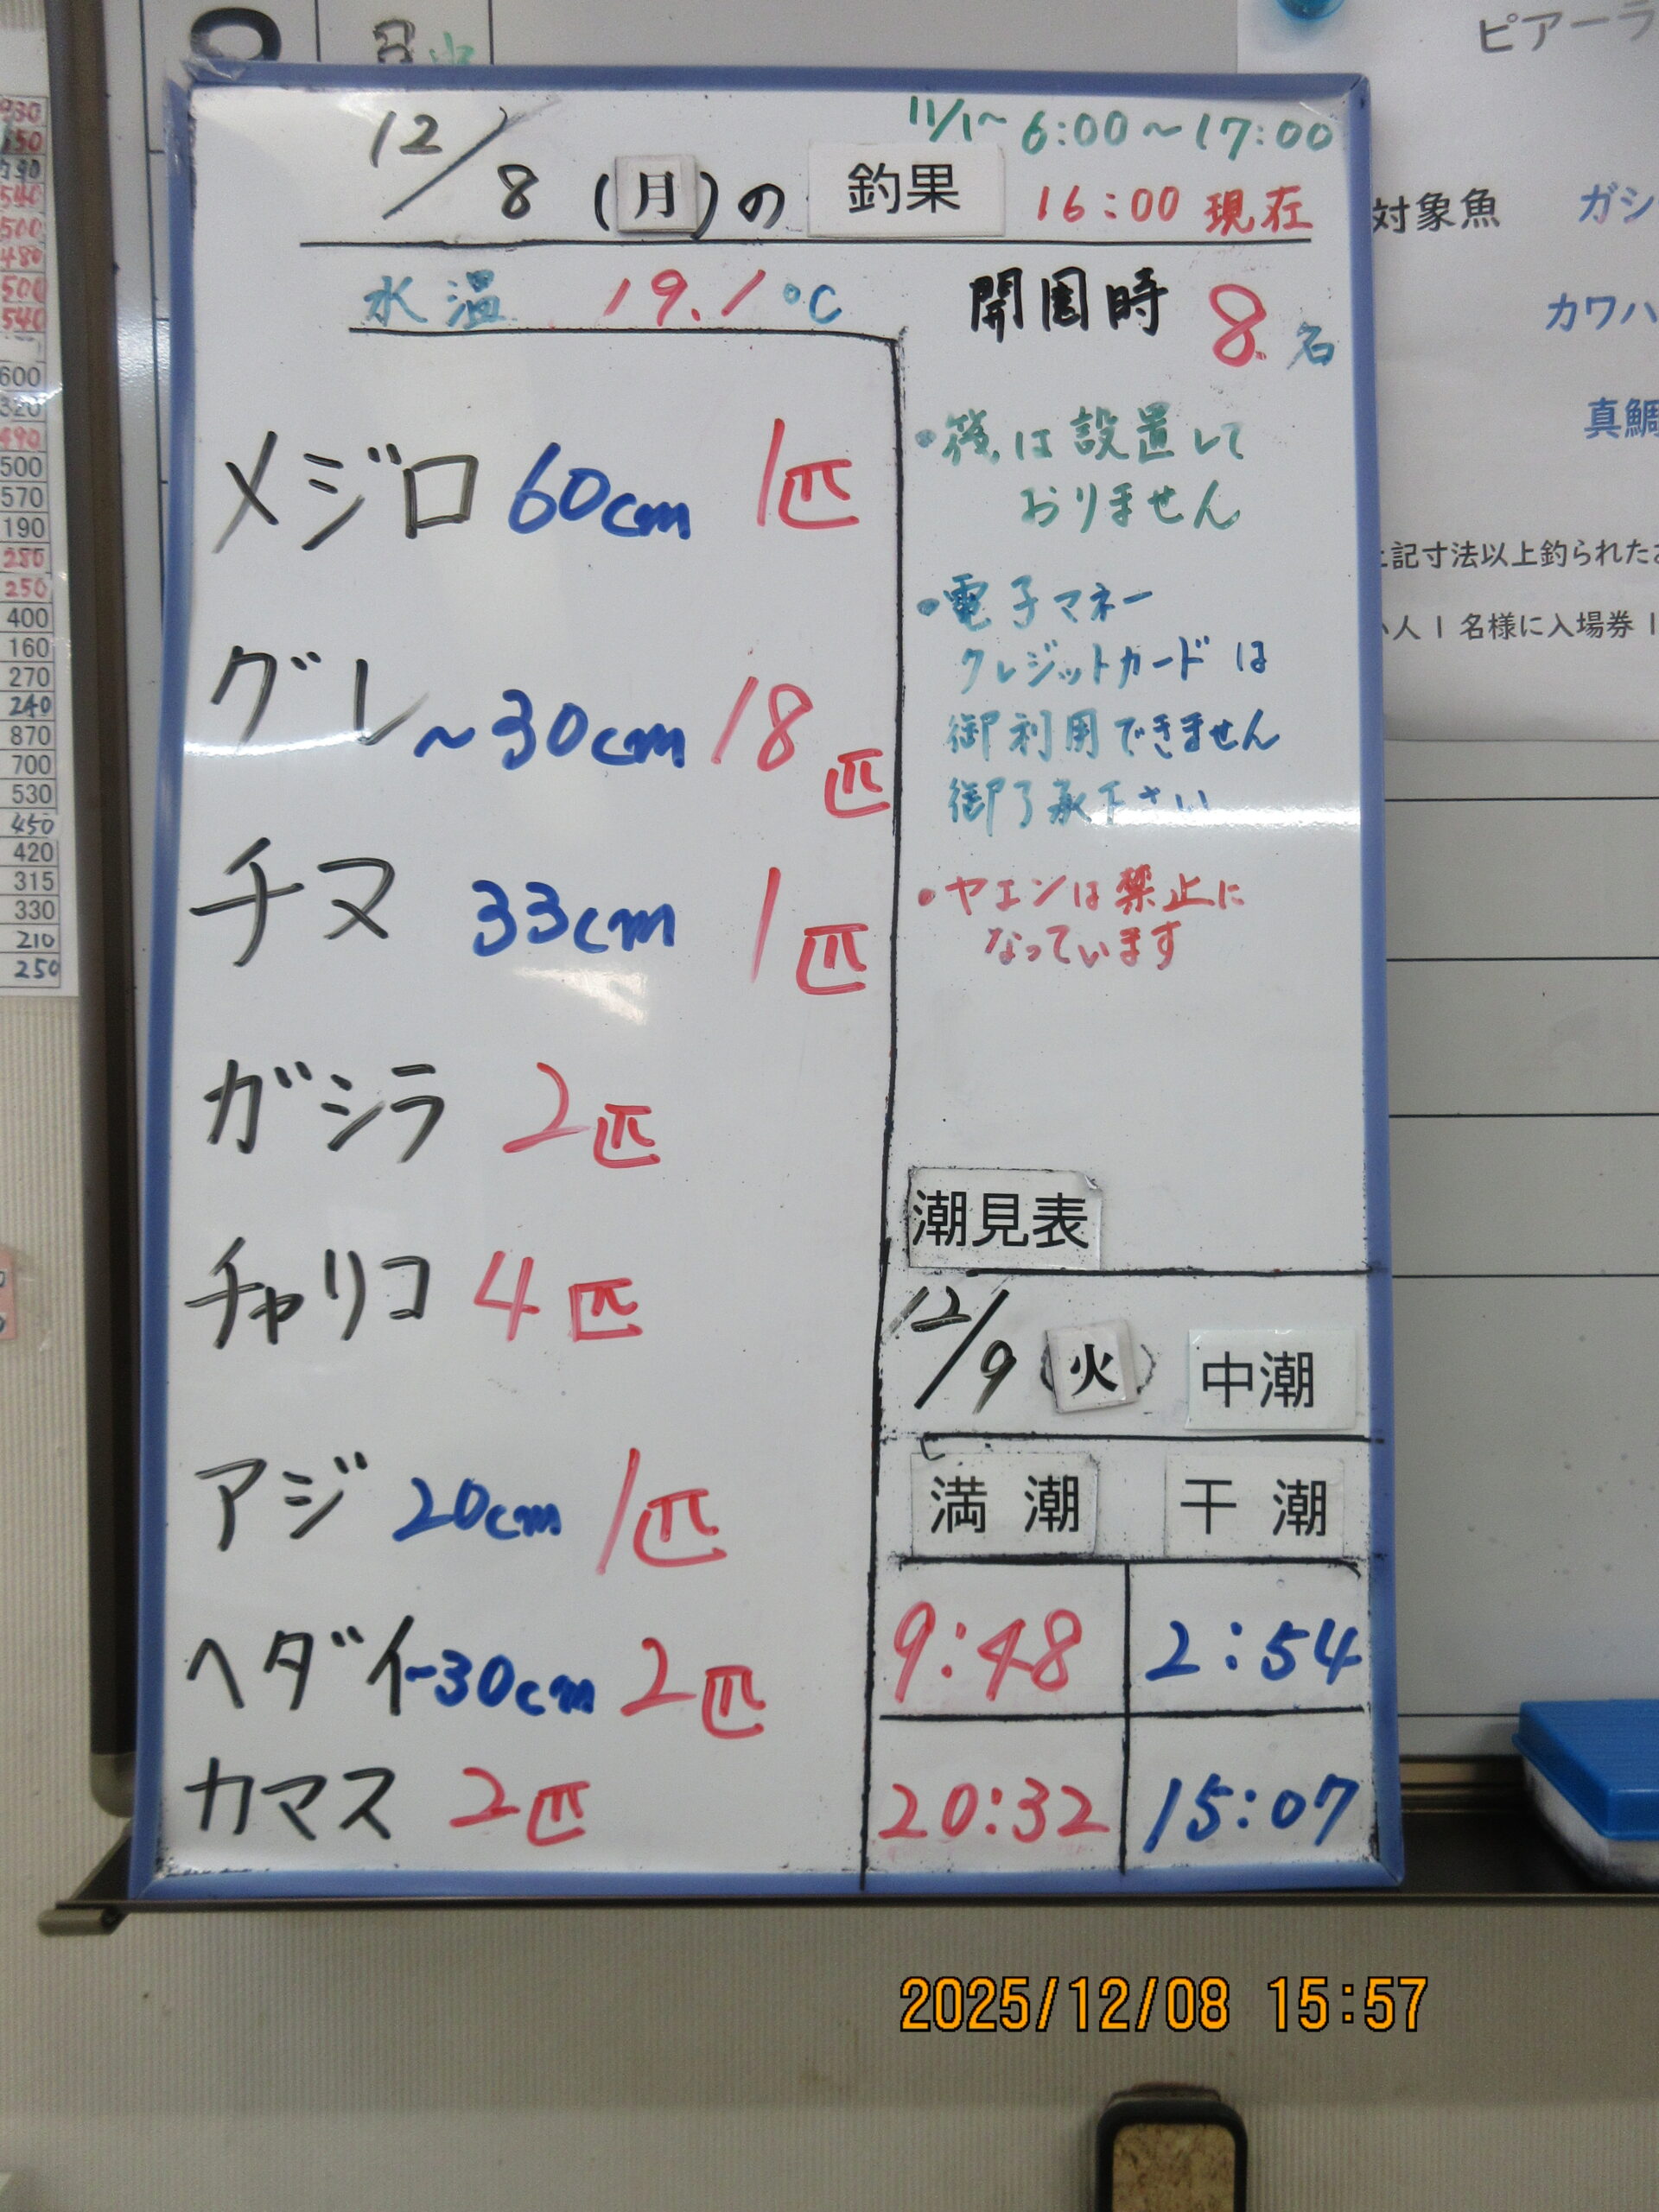 12/8 (月)の 釣果
11/1~ 6:00~17:00
16:00 現在
水温 19.1℃
開園時 8名
メジロ 60cm 1匹
グレ ~30cm 18匹
チヌ 33cm 1匹
ガシラ 2匹
チャリコ 4匹
アジ 20cm 1匹
ヘダイ ~30cm 2匹
カマス 2匹
・筏は設置して
おりません
・電子マネー
クレジットカードは
御利用できません
御了承下さい
・ヤエンは禁止に
なっています
潮見表
12/9 (火) 中潮
満潮 干潮
9:48 2:54
20:32 15:07
ピアーラ
対象魚 ガシ
カワハ
真鯛
記寸法以上釣られた
人1名様に入場券1
600
320
490
500
570
190
280
250
400
160
270
240
870
700
530
450
420
315
330
210
250
2025/12/08 15:57